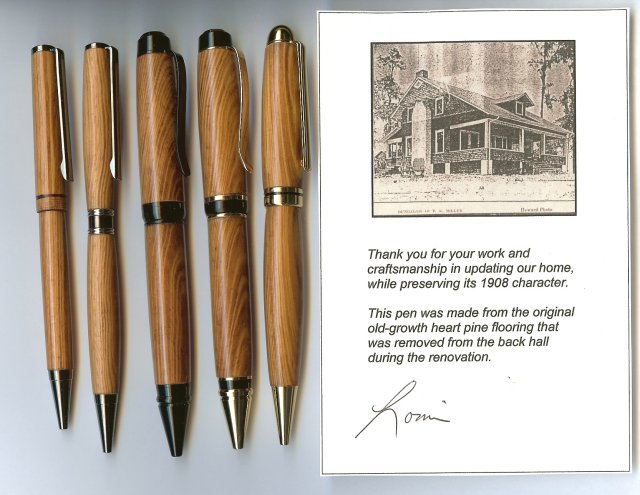 BUNGALOW OF T. A. MILLER
Howard Photo
Thank you for your work and
craftsmanship in updating our home,
while preserving its 1908 character.
This pen was made from the original
old-growth heart pine flooring that
was removed from the back hall
during the renovation.